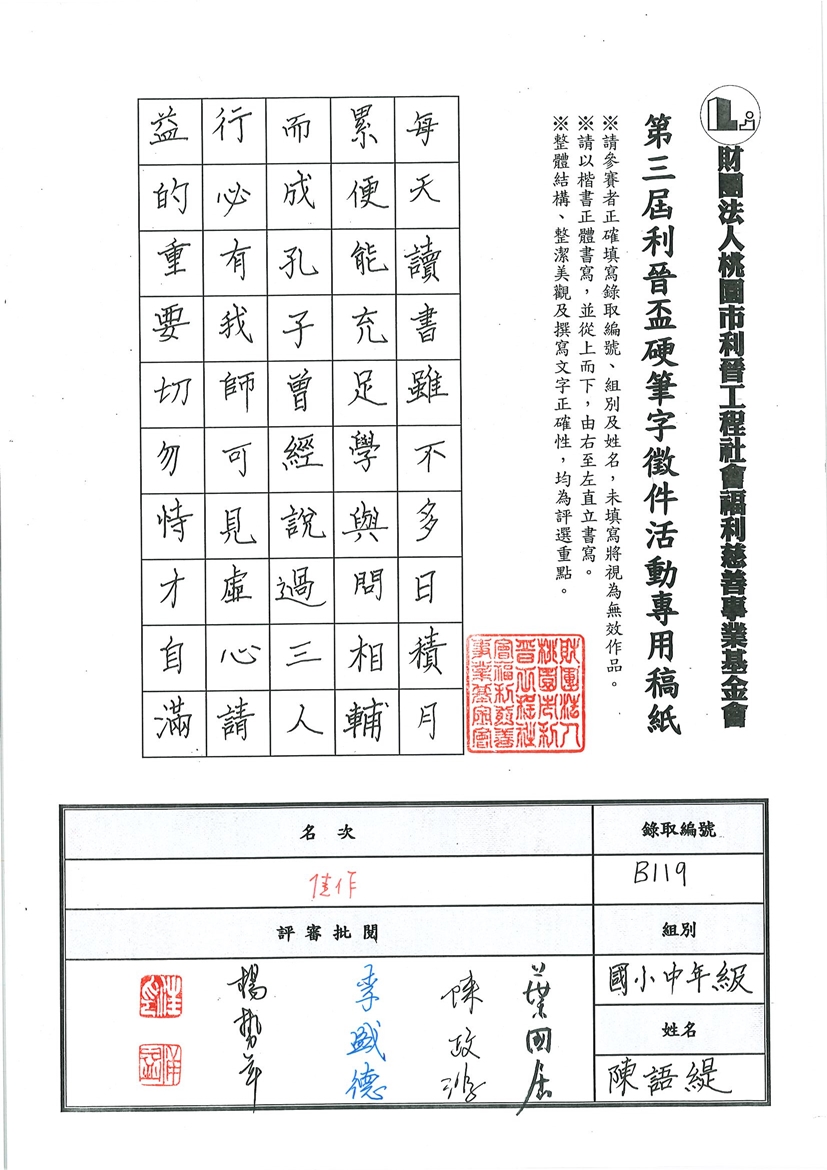 財團法人桃園市利晉工程社會福利慈善事業基金會
第三屆利晉盃硬筆字徵件活動專用稿紙
※請參賽者正確填寫錄取編號、組別及姓名，未填寫將視為無效作品。
※請以楷書正體書寫，並從上而下，由右至左直立書寫。
※整體結構、整潔美觀及撰寫文字正確性，均為評選重點。
每天讀書雖不多日積月
累便能充足學與問相輔
而成孔子曾經說過三人
行必有我師可見虛心請
益的重要切勿恃才自滿
財團法人
桃園市利
晉工程社
會福利慈善
事業基金會
錄取編號
B119
組別
國小中年級
姓名
陳語緹
名次
佳作
評審批閱
葉國居
陳政
李盛德